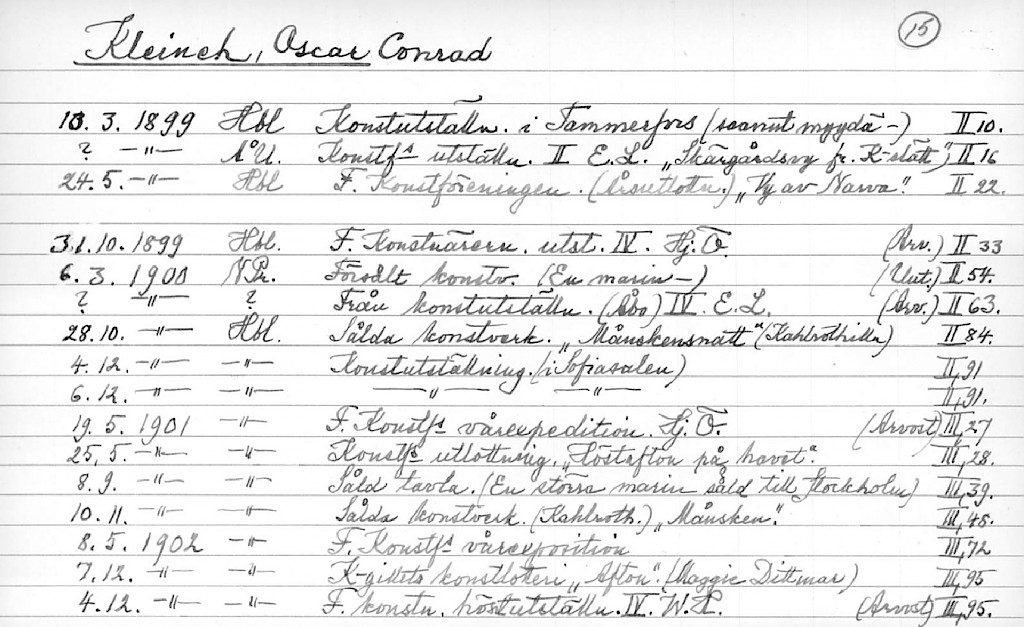 15
Kleineh, Oscar Conrad
10. 3. 1899 Hbl Konstutställn. i Tammerfors (saanut myydä -) II 10.
? -"- Å.U. Konstfs utställn. II E.L. „Skärgårdsvy fr. K-slätt", II 16
24. 5. -"- Hbl F. Konstföreningen. (Årsutlottn.) „Vy av Narva". II 22.
31. 10. 1899 Hbl. F. Konstnärern. utst. IV. Hj. Ö. (Arv.) II 33
6. 3. 1900 N.Pr. Försålt konstv. (En marin -) (Uut.) II 54.
? -"- ? Från konstutställn. (Åbo) IV. E.L. (Arv.) II 63.
28.10. -"- Hbl. Sålda konstverk. „Månskensnatt" (Kahlrothilla) II 84.
4. 12. -"- -"- Konstutställning. (i Sofiasalen) II, 91
6. 12. -"- -"- -"- -"- II, 91.
19. 5. 1901 -"- F. Konstfs vårexpedition. Hj. Ö. (Arvost) III, 27
25, 5. -"- -"- Konstfs utlottning. „Höstafton på havet". III, 28.
8. 9. -"- -"- Såld tavla. (En större marin såld till Stockholm) III, 39.
10. 11. -"- -"- Sålda konstverk. (Kahlroth.) „Månsken". III, 48.
8. 5. 1902 -"- F. Konstfs vårexposition III, 72
7. 12. -"- -"- K-gillets konstlotteri „Afton". (Maggie Dittmar) III, 95
4. 12. -"- -"- F. konstn. höstutställn. IV. W.L. (Arvost) III, 95.